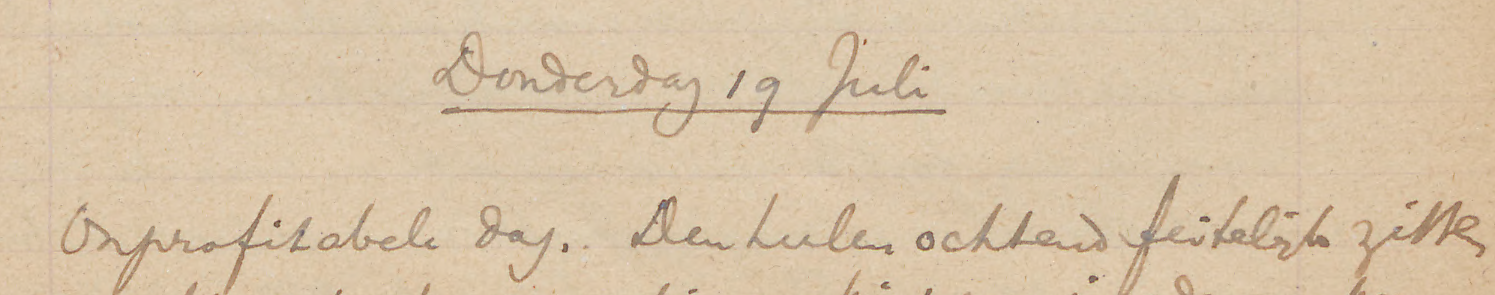 Donderdag 19 Juli
Onprofitabele dag. Den heelen ochtend feitelijk zitten